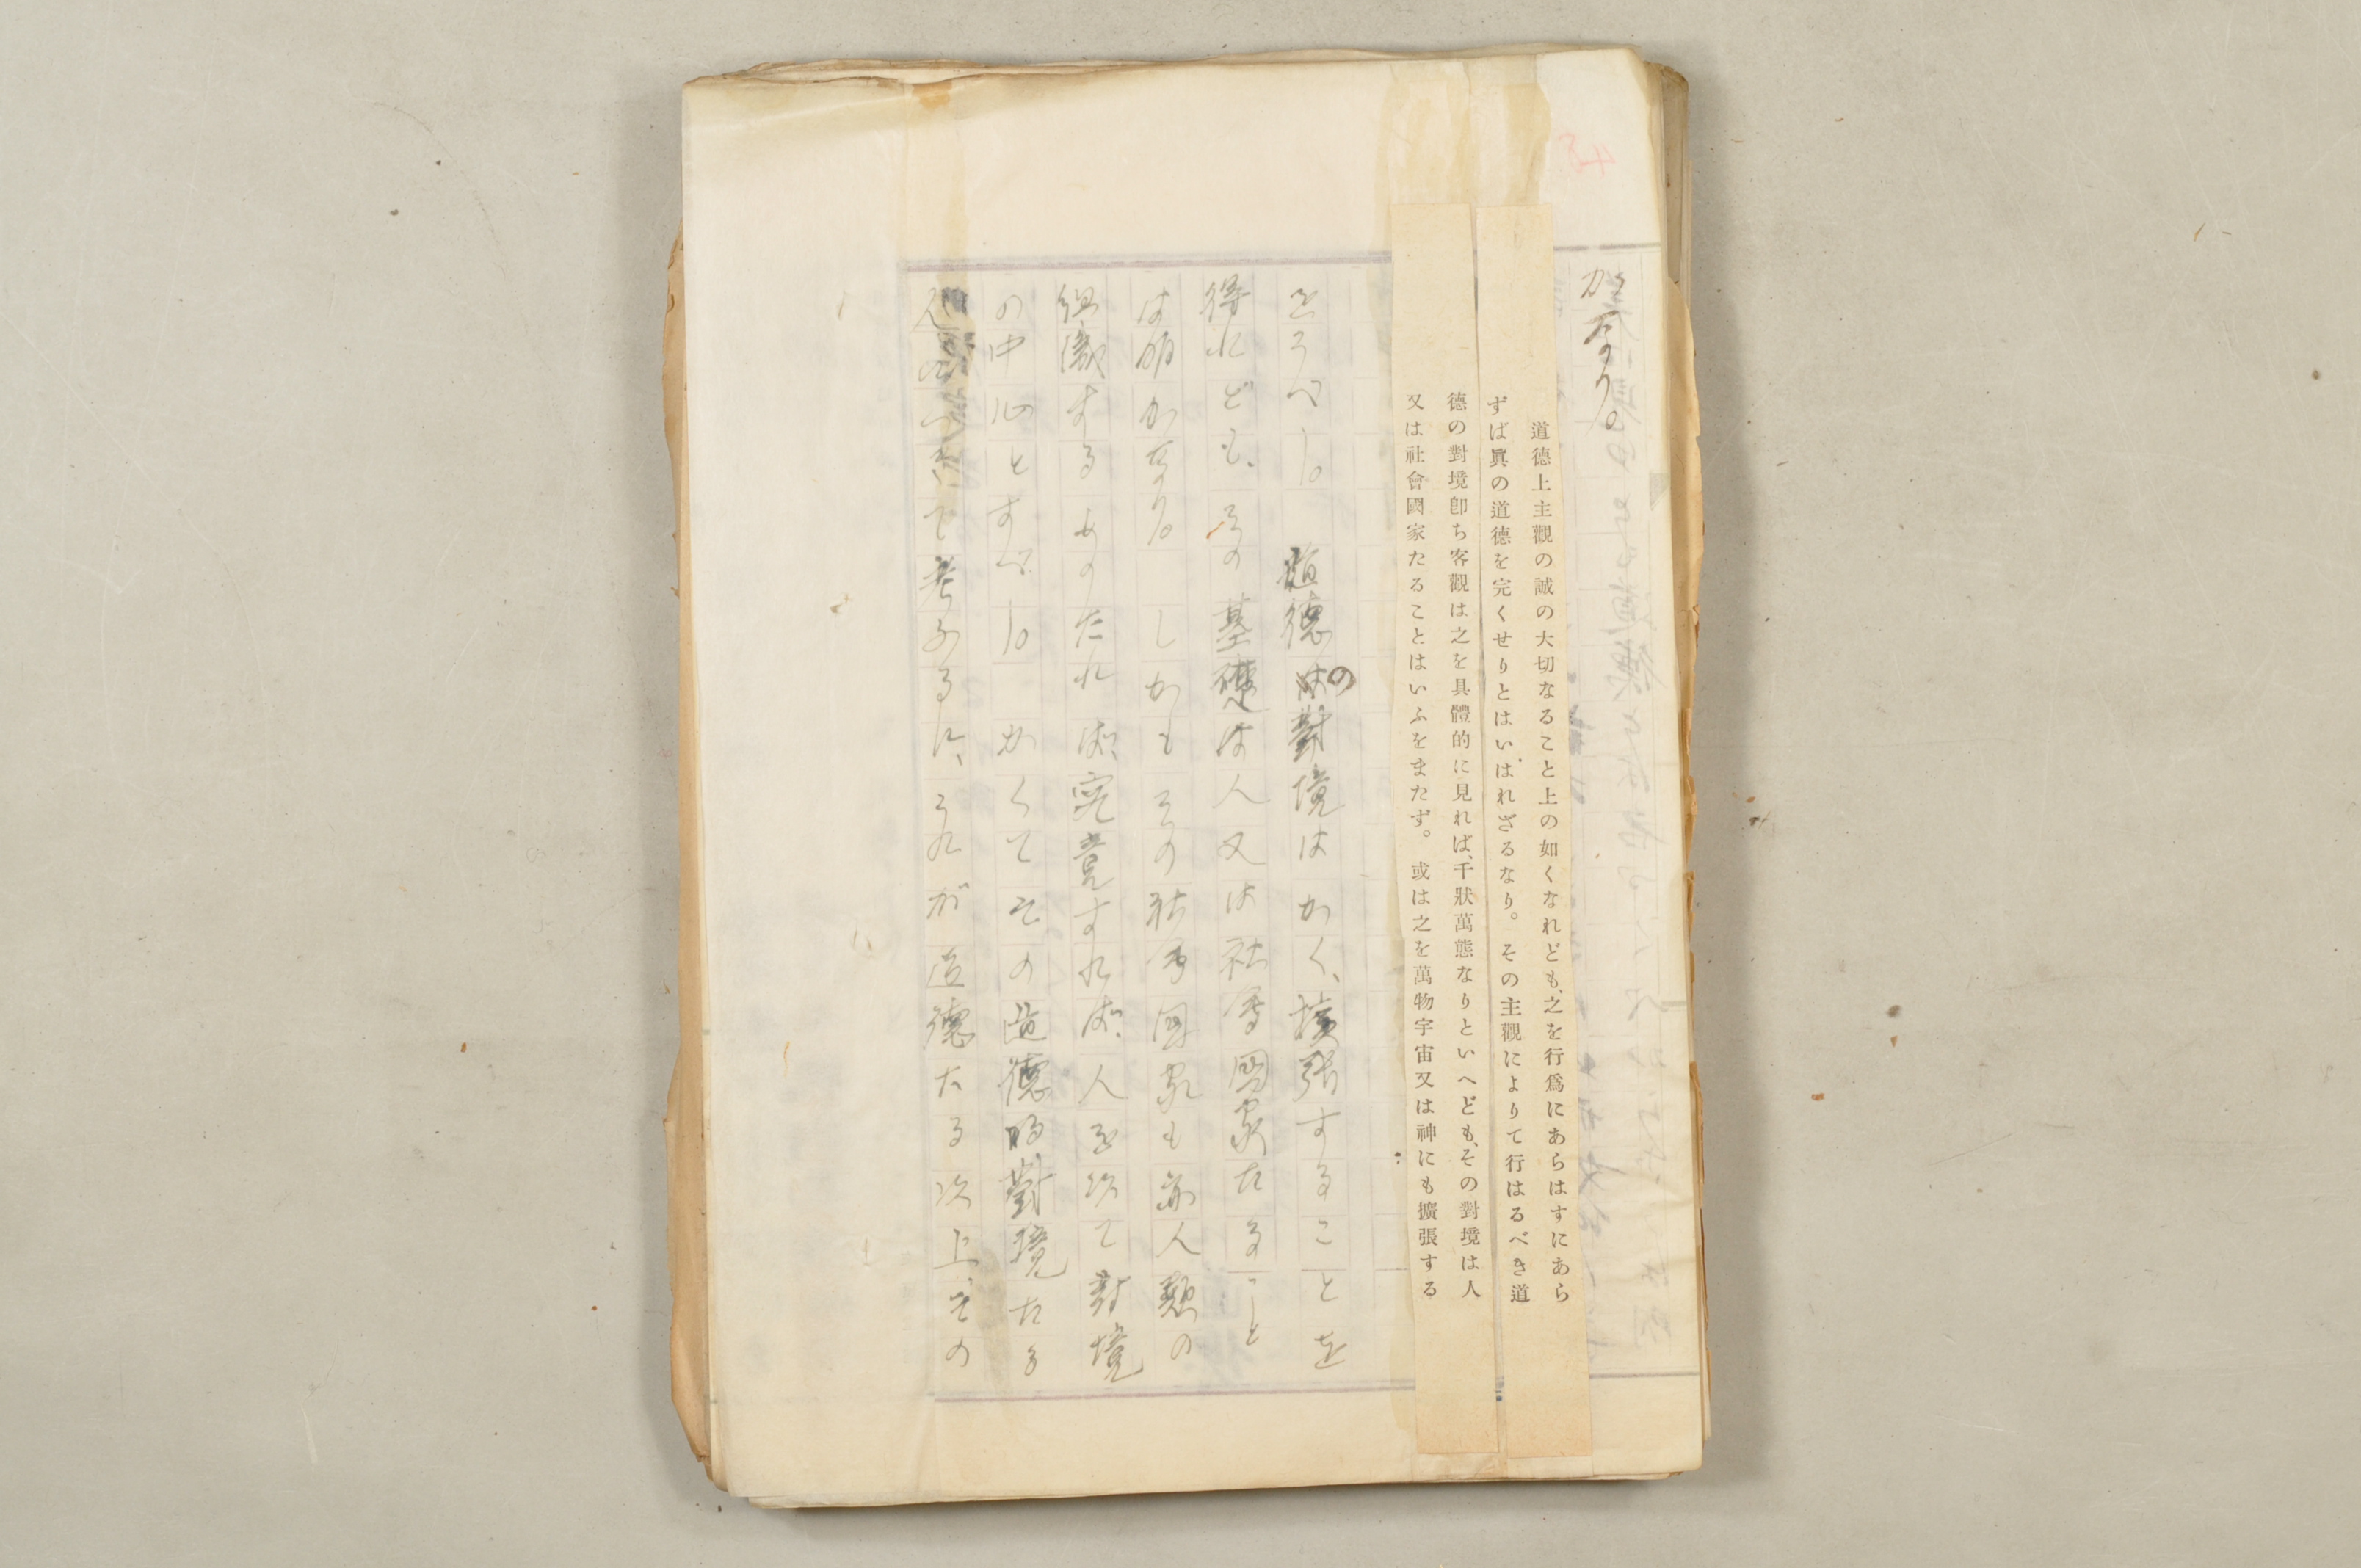 かなり。
道德上主觀の誠の大切なること上の如くなれども、之を行爲にあらはすにあら
ずば眞の道德を完くせりとはいはれざるなり。その主觀によりて行はるべき道
德の對境卽ち客觀は之を具體的に見れば、千狀萬態なりといへども、その對境は人
又は社會國家たることはいふをまたず。或は之を萬物宇宙又は神にも擴張する
をうべし。道德の對境はかく、擴張することを
得れども、その基礎は人又は社會國家たること
は明かなり。しかもその社會国家も亦人類の
組織するものたれば、究竟すれば、人を以て對境
の中心とすべし。かくてその道德的對境たる
人に就て考ふるに、それが道德たる以上、その